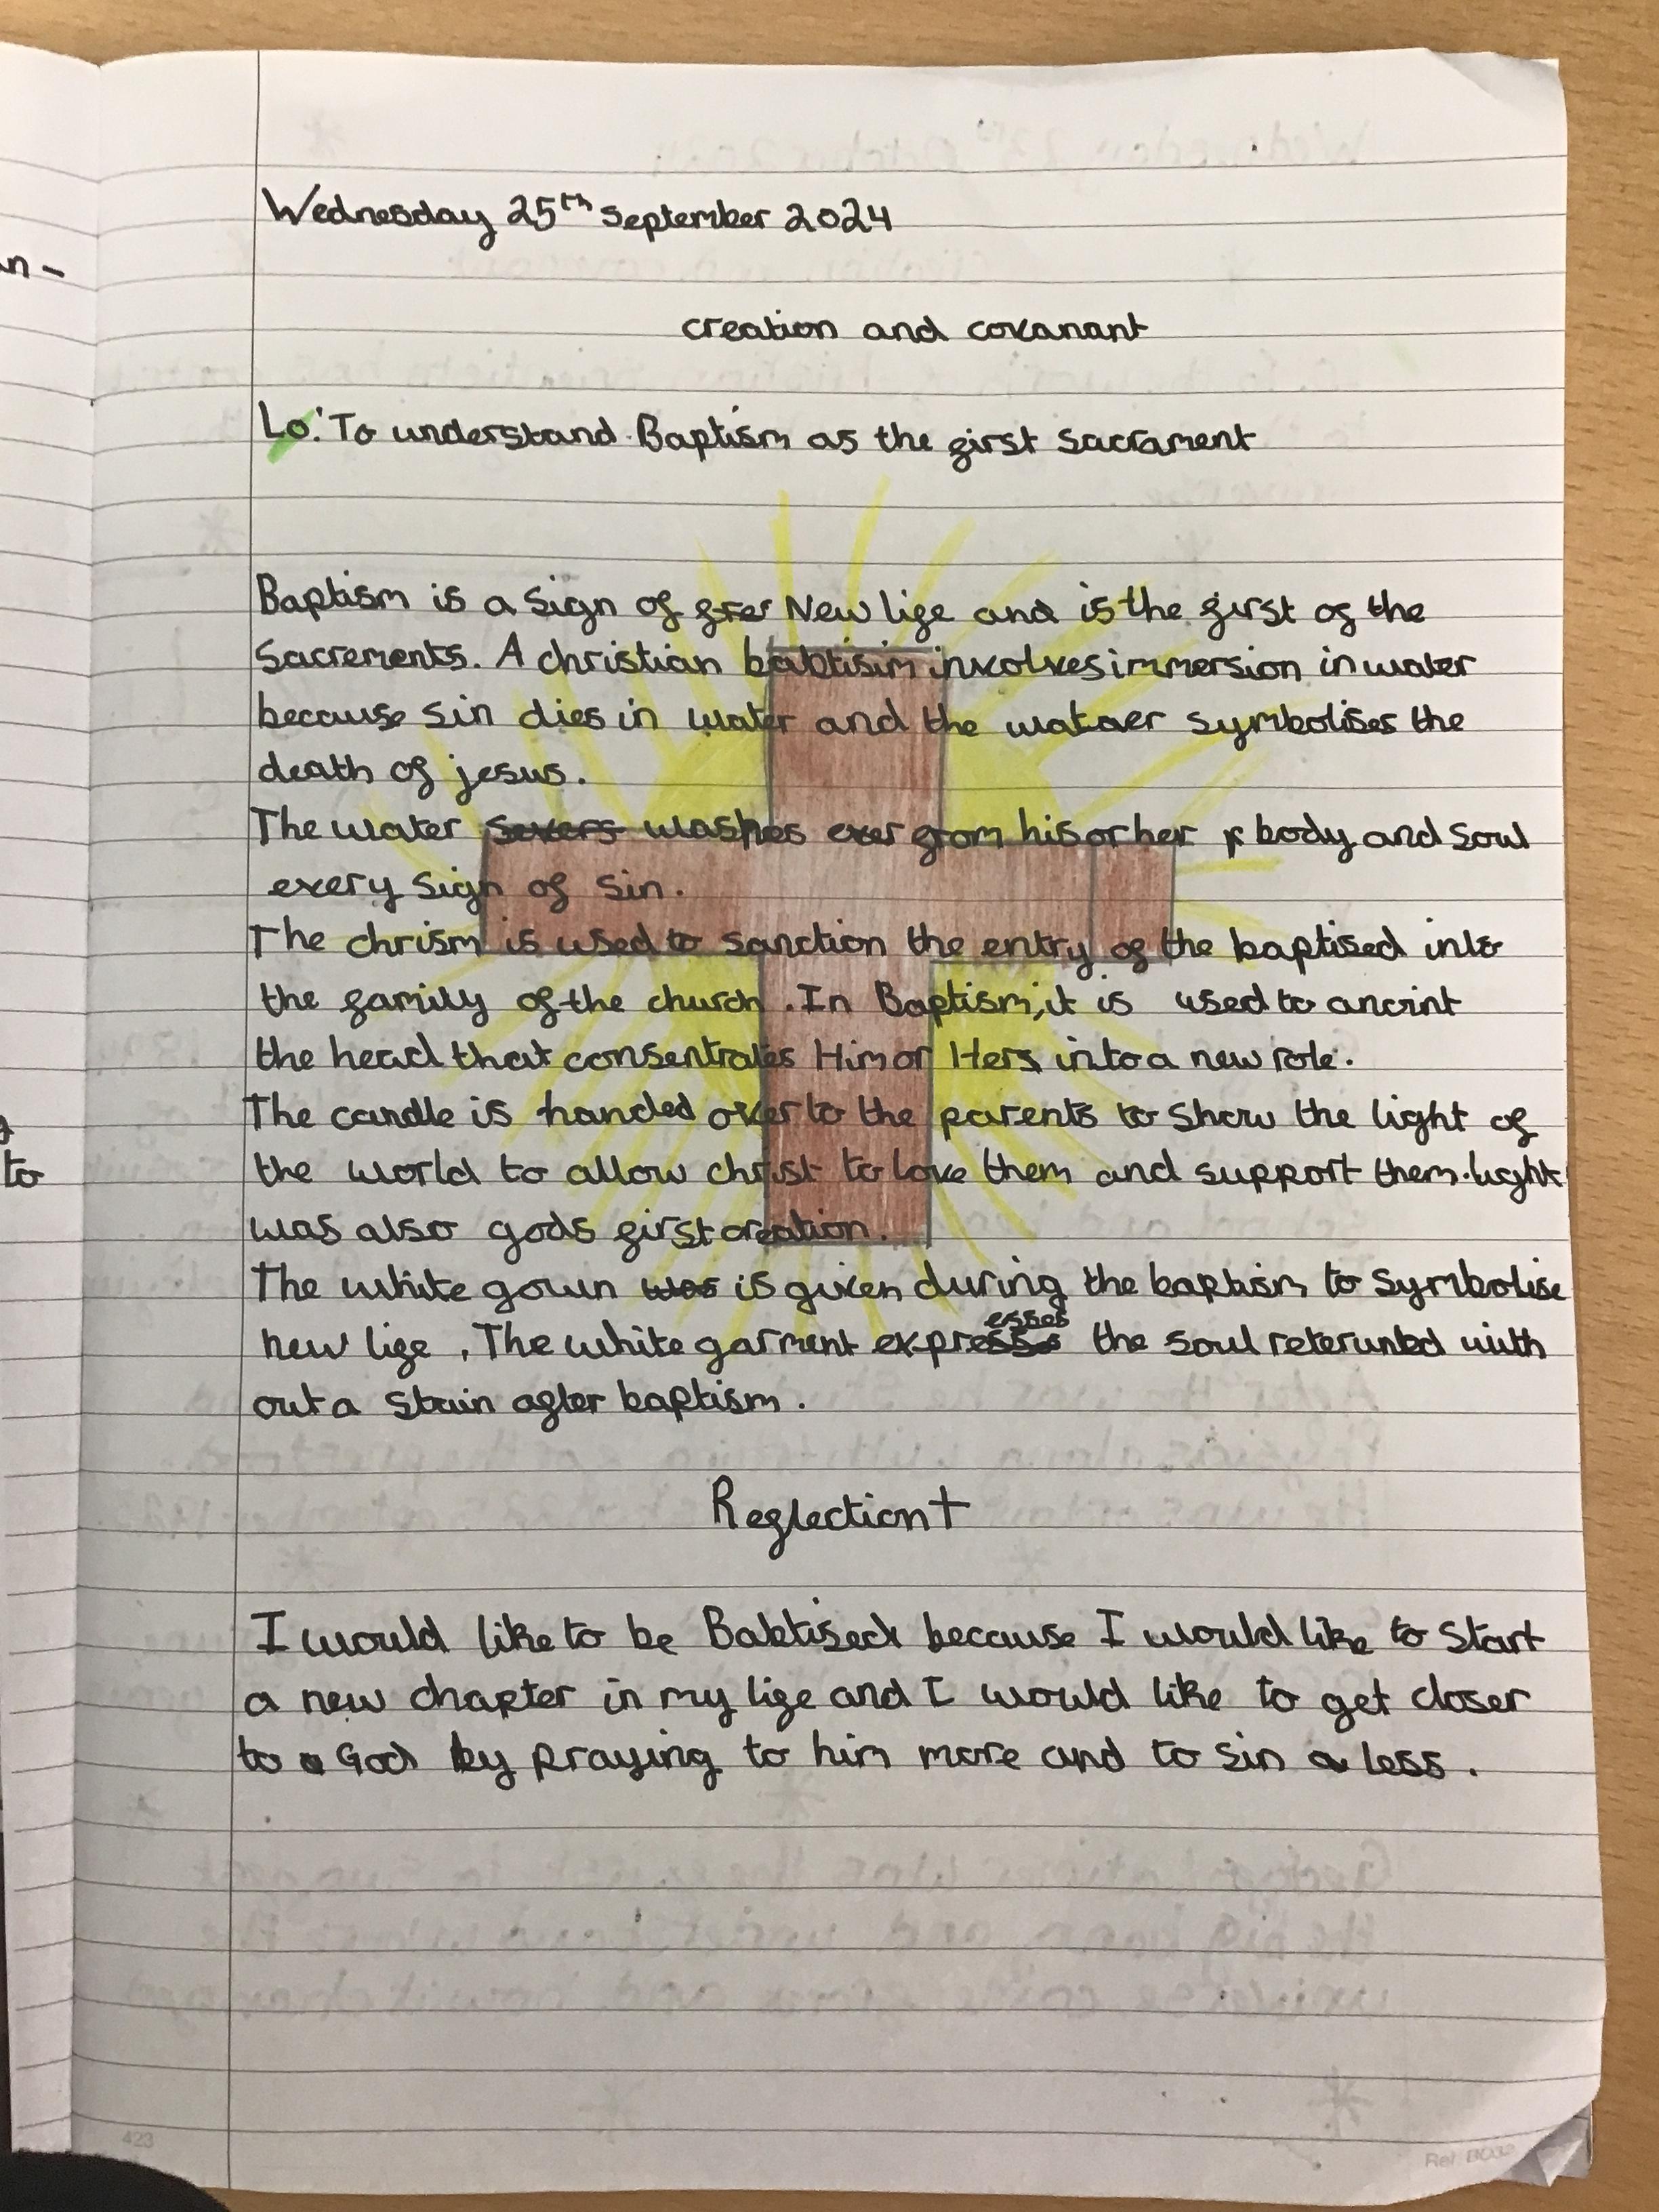 Wednesday 25th September 2024
creation and covanant
Lo: To understand Baptism as the first Sacrament
Baptism is a sign of New life and is the first of the
Sacrements. A christian babtisim involves immersion in water
because sin dies in water and the wataer symbolises the
death of jesus.
The water severs washes ever from his or her body and soul
every sign of sin.
The chrism is used to sanction the entry of the baptised into
the family of the church. In Baptism, it is used to anoint
the head that consentrates Him or Hers into a new role.
The candle is handed over to the parents to show the light of
the world to allow christ to love them and support them. light
was also gods first creation.
The white gown was is given during the baptism to symbolise
esses
new life. The white garment expresses the soul reterunted with
out a stain after baptism.
Reflection
I would like to be Babtised because I would like to start
a new chapter in my life and I would like to get closer
to a God by praying to him more and to sin a less.
n -
to
423